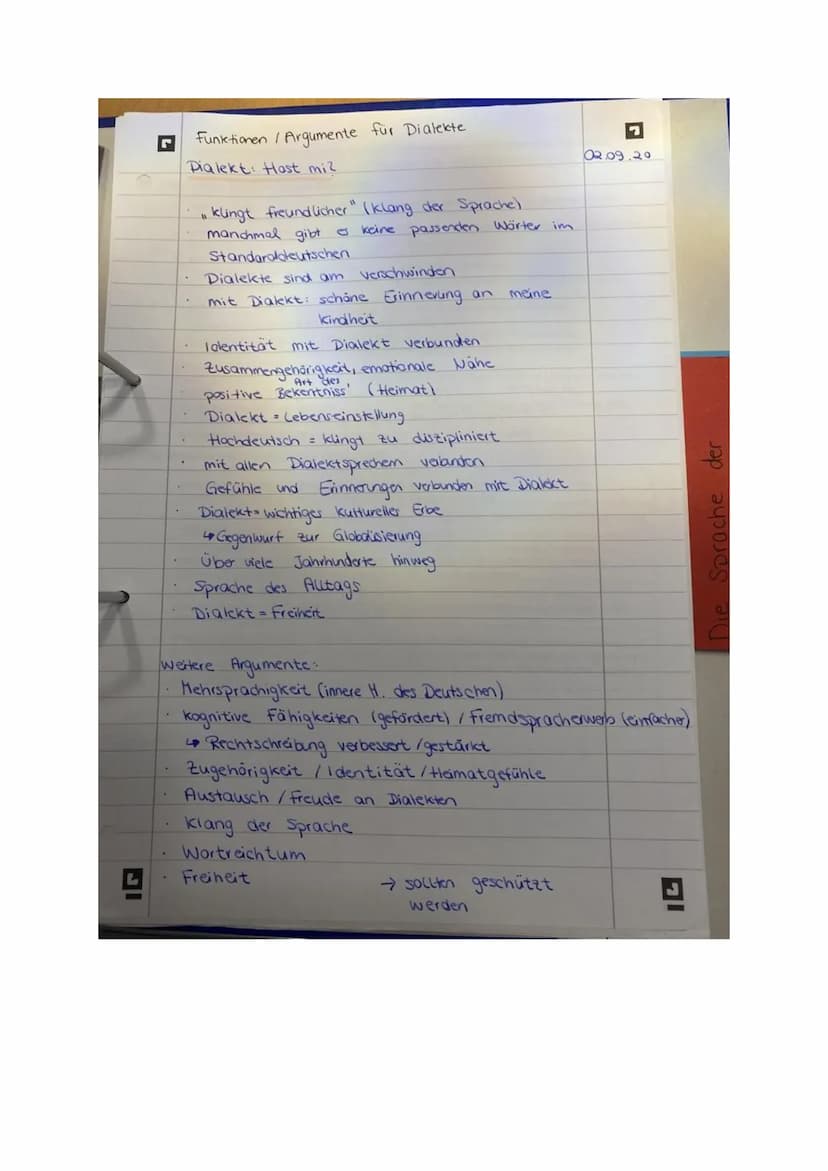 Funktionen / Argumente für Dialekte
02.09.20
Dialekt: Host mi?
· „klingt freundlicher" (Klang der Sprache)
· manchmal gibt es keine passenden Wörter im
Standarddeutschen
· Dialekte sind am verschwinden
· mit Dialekt: schöne Erinnerung an meine
Kindheit
· Identität mit Dialekt verbunden
· Zusammengehörigkeit, emotionale Nähe
Art des
· positive Bekentniss' (Heimat)
· Dialekt = Lebenseinstellung
· Hochdeutsch = klingt zu diszipliniert
· mit allen Dialektsprechern verbunden
Gefühle und Erinnerungen verbunden mit Dialekt
· Dialekt = wichtiges kultureller Erbe
↳ Gegenwurf zur Globalisierung
· Über viele Jahrhunderte hinweg
· Sprache des Alltags
· Dialekt = Freiheit
Weitere Argumente:
· Mehrsprachigkeit (innere M. des Deutschen)
· kognitive Fähigkeiten (gefördert) / Fremdspracherwerb (einfacher)
↳ Rechtschreibung verbessert / gestärkt
· Zugehörigkeit / Identität / Heimatgefühle
· Austausch / Freude an Dialekten
· Klang der Sprache
· Wortreichtum
· Freiheit
→ sollten geschützt
werden
Die Sprache der